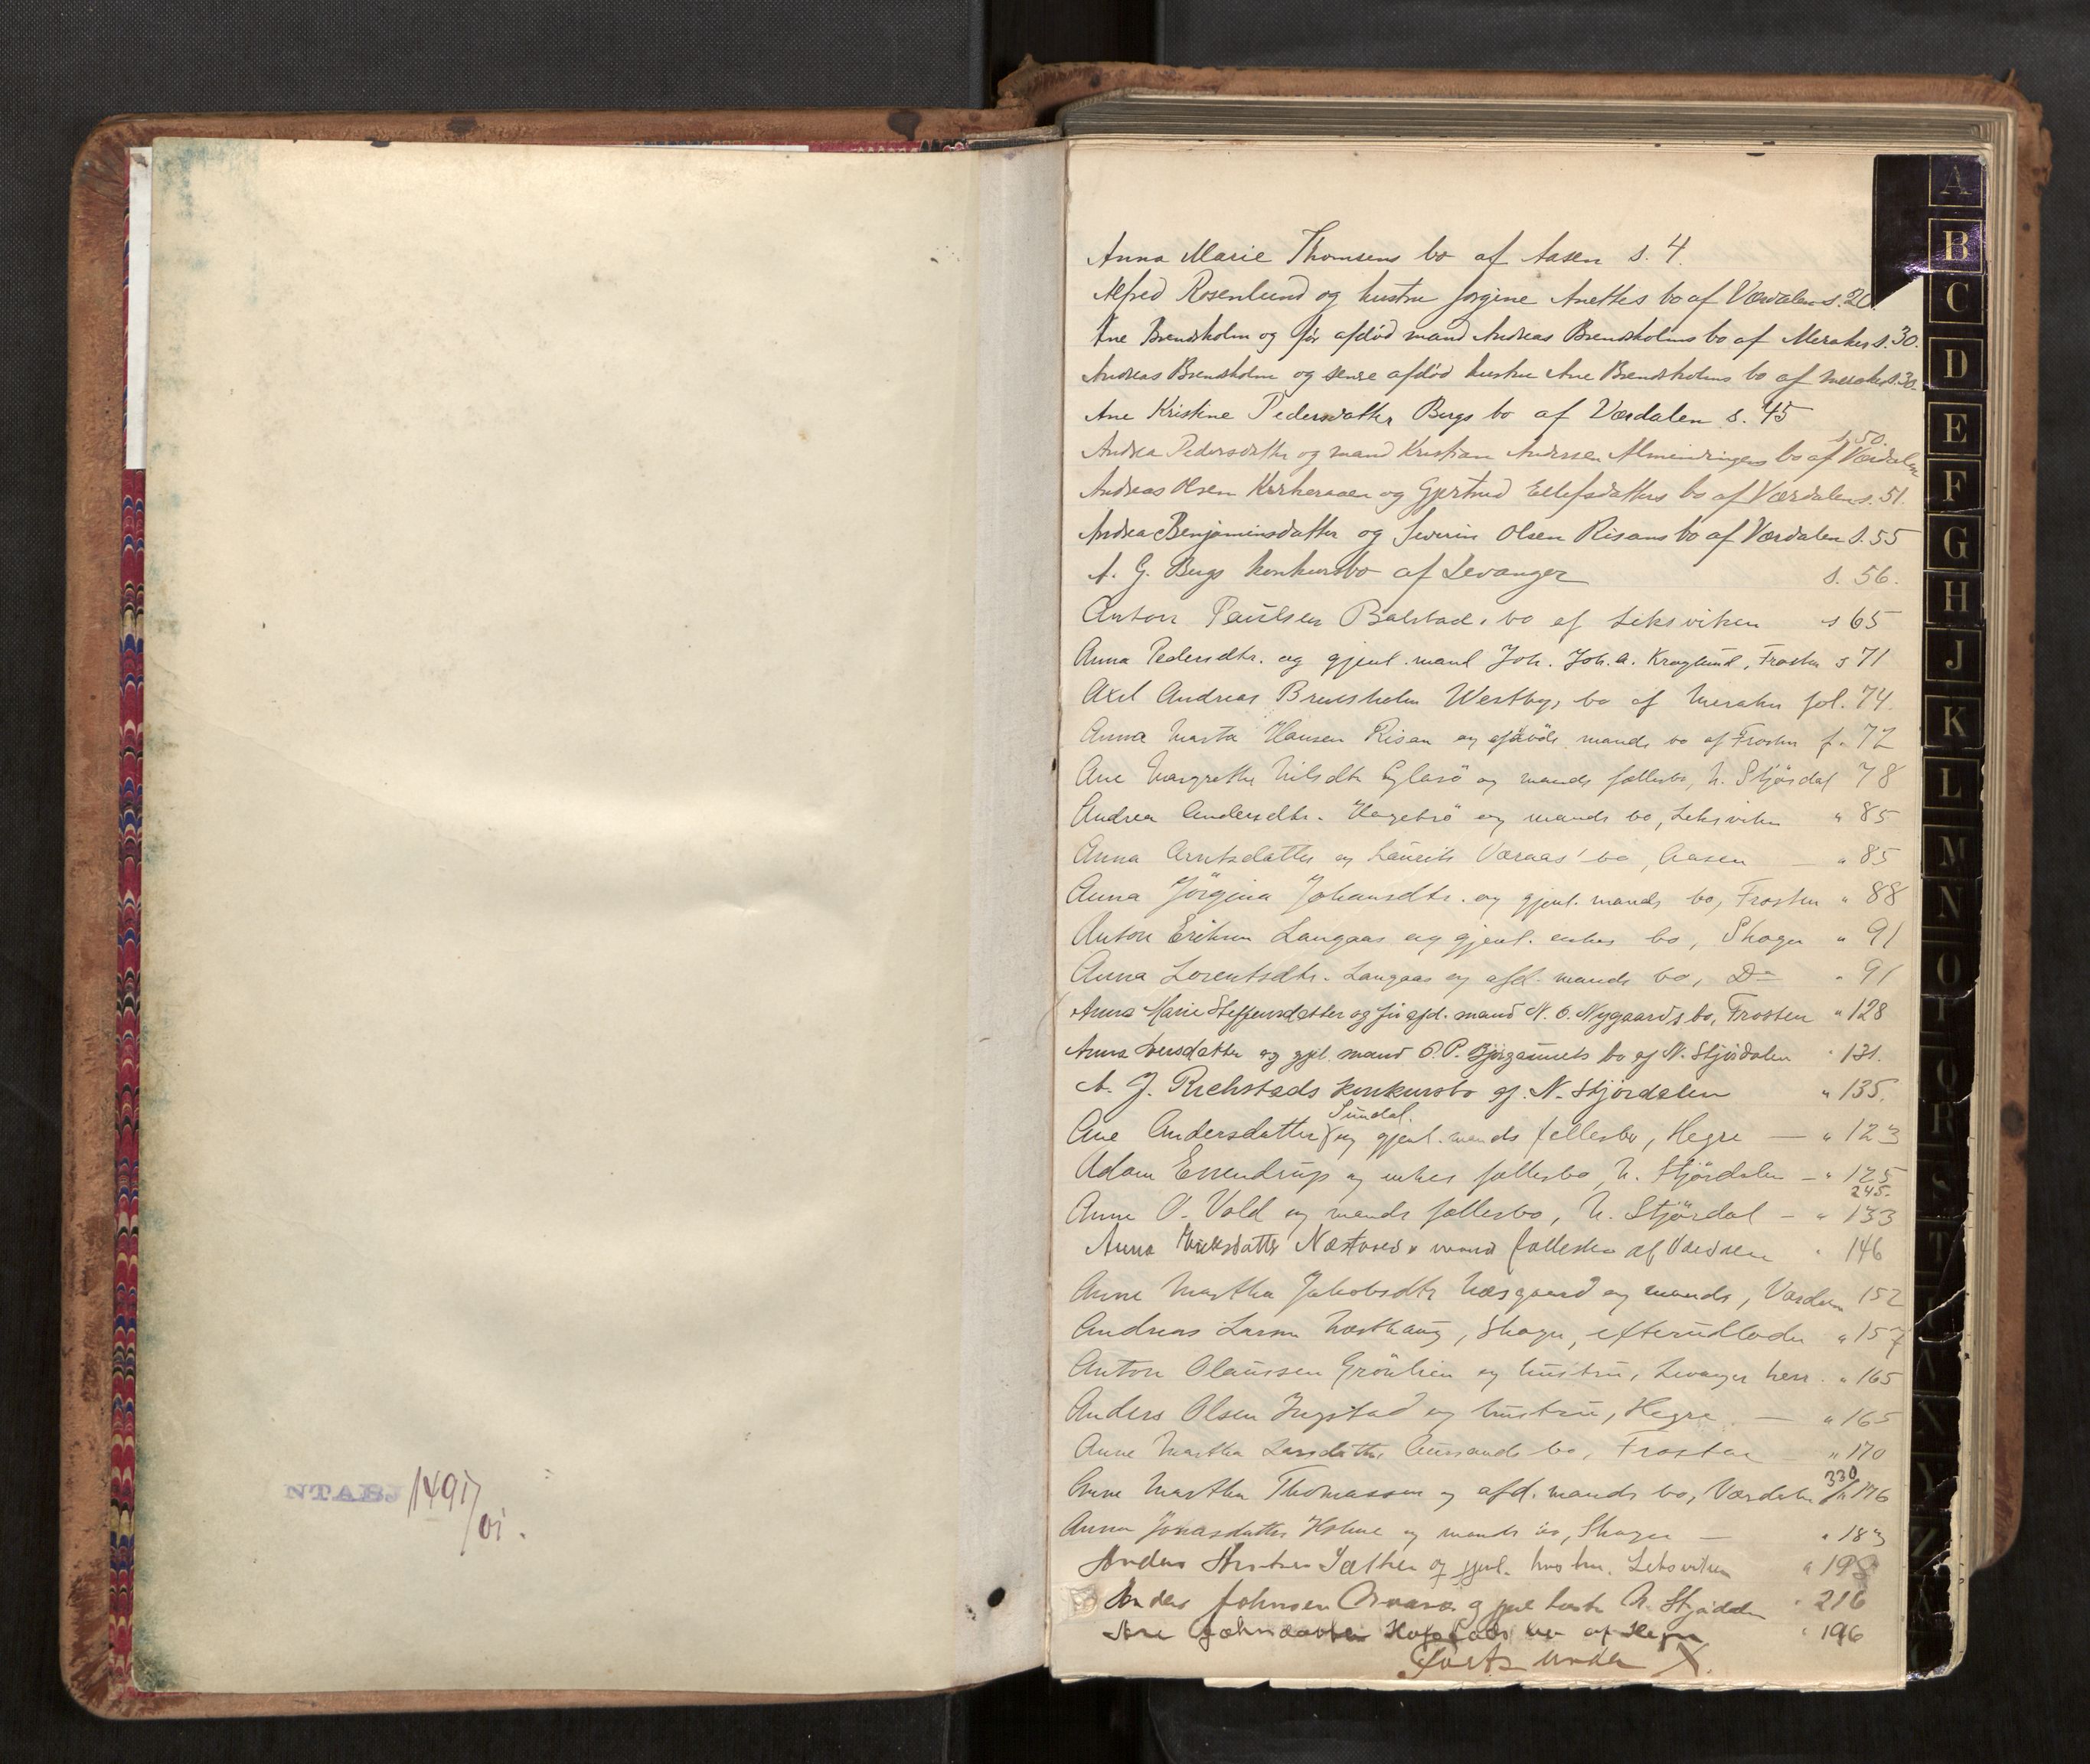 NTABJ 1491/01.
Anna Marie Thomsens bo af Aasen s. 4.
Alfred Rosenlund og hustru Jorgine Anettes bo af Værdalen s. 20.
Ane Brendsholm og før afdød mand Andreas Brendsholms bo af Meraker s. 30.
Andreas Brendsholm og senere afdød hustru Ane Brendsholms bo af Meraker s. 30.
Ane Kristine Pedersdatter Bergs bo af Værdalen s. 45
s. 50.
Andrea Pedersdatter og mand Kristian Andersen Almenningens bo af Værdalen
Andreas Olsen Kirkeraaen og Gjertrud Ellefsdatters bo af Værdalen s. 51.
Andrea Benjaminsdatter og Severin Olsen Risans bo af Værdalen s. 55
A. G. Bergs konkursbo af Levanger s. 56.
Anton Paulsen Balstads bo af Leksviken s 65
Anna Pedersdtr. og gjenl. mand Joh. Joh. A. Kraglund, Frosten s 71
Axel Andreas Brendsholm Westbys bo af Meraker fol. 74.
Anna Marta Hansen Risan og afdøde mands bo af Frosten f. 72
Ane Margrethe Nilsdtr og mands fællesbo, N. Stjørdal 78
Andrea Andersdtr. og mands bo, Leksviken " 85
Anna Arntsdatter og Laurits Væraas' bo, Aasen — " 85
Anna Jørgina Johansdtr. og gjenl. mands bo, Frosten " 88
Anton Eriksen Langaas og gjenl. enkes bo, Skogn " 91
Anna Lorentsdtr. Langaas og afd. mands bo, Do " 91
Anna Marie Steffensdatter og før afd. mand N. O. Nygaards bo, Frosten " 128
Anna Iversdatter og gjel. mand O. P. bo af N. Stjørdalen " 131.
A. J. Richstads konkursbo af N. Stjørdalen " 135.
Sundal.
Ane Andersdatter og gjenl. mands fellesbo, Hegre — " 123
Adam Essendrup og enkes fællesbo, N. Stjørdalen — " 125
245.
Anne O. Vold og mands fællesbo, N. Stjørdal — " 133
Anna Næstvold mand fællesbo af Værdalen " 146
Anne Martha Jakobsdtr Næsgaard og mands, Værdalen 152
Andreas Larsen , Skogn, efterudlodn " 157
Anton Olaussen Grønlien og hustru, Levanger herr. " 165
Anders Olsen Ingstad og hustru, Hegre — " 165
Anne Martha Larsdatter Aursands bo, Frosta " 170
330
Anne Martha Thomassen og afd. mands bo, Værdalen 176
Anna Jonasdatter Holme og mands bo, Skogn — " 183
Anders Sæther og gjenl. hustru, Leksviken " 198
Anders Johnsen og gjenl hustr N. Stjørdalen " 216
Ane Johnsdatter bo af Hegre " 196
Forts under X.
A
B
C
D
E
F
G
H
J
K
L
M
N
O
P
Q
R
S
T